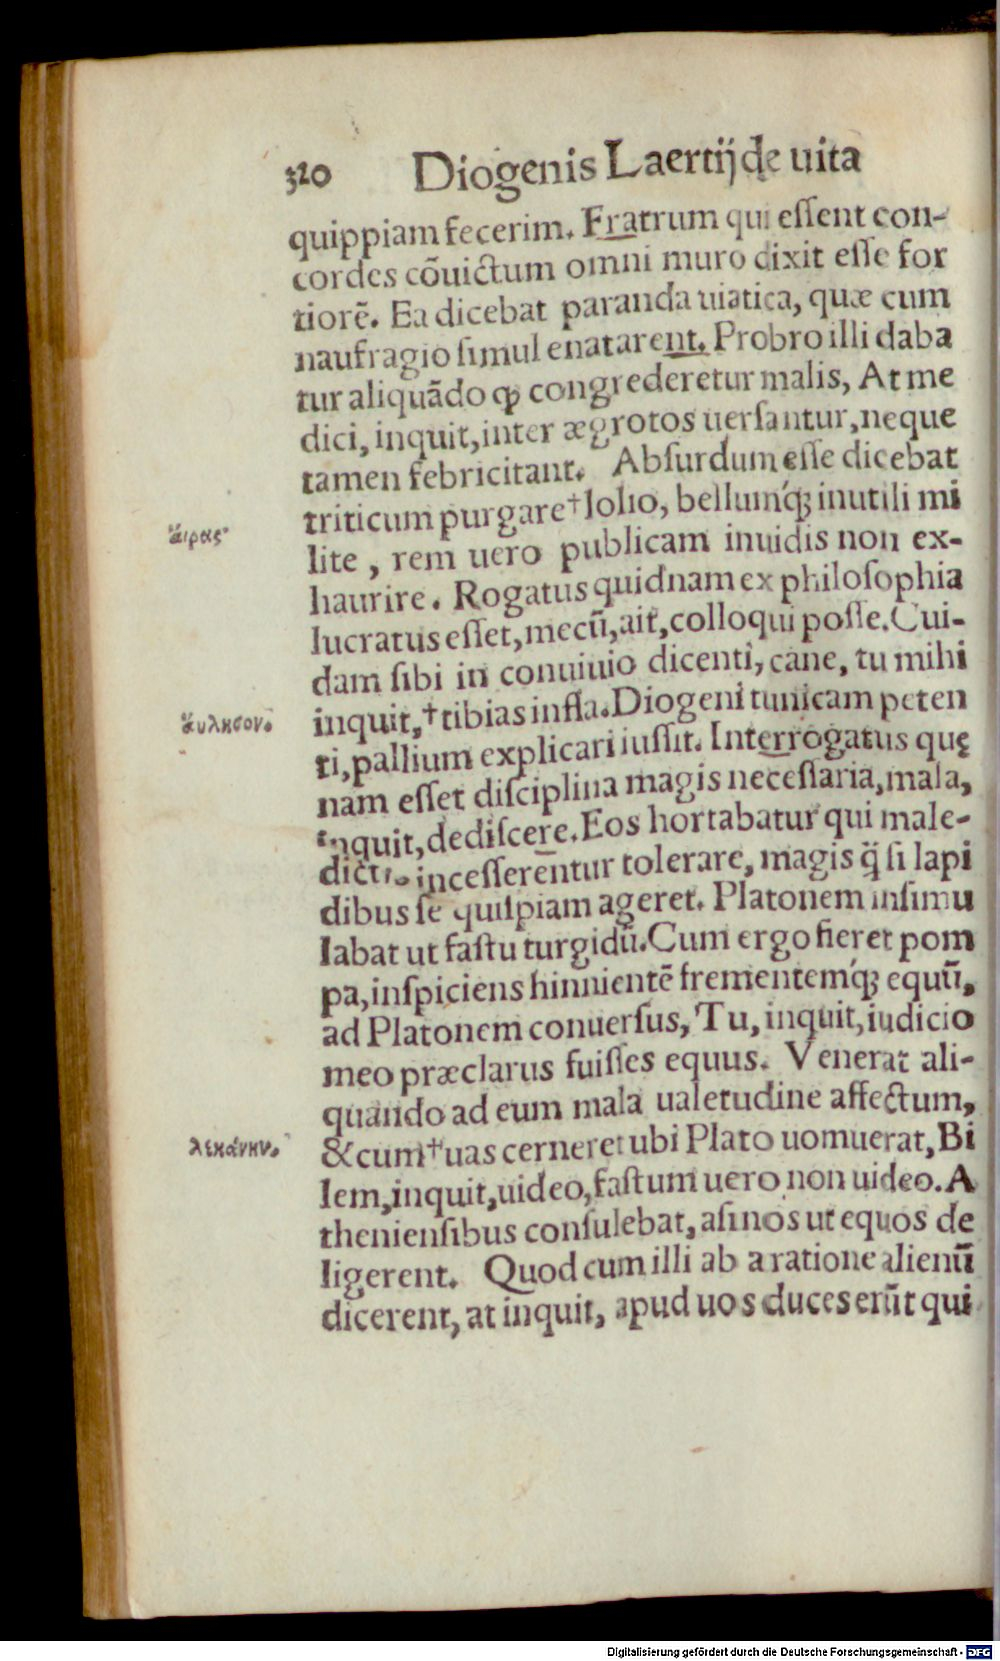 320 Diogenis Laertij de uita
quippiam fecerim. Fratrum qui eſſent con-
cordes cõuictum omni muro dixit eſſe for
tiorẽ. Ea dicebat paranda uiatica, quæ cum
naufragio ſimul enatarent. Probro illi daba
tur aliquãdo ꝙ congrederetur malis, At me
dici, inquit, inter ægrotos uerſantur, neque
tamen febricitant. Abſurdum eſſe dicebat
triticum purgare † lolio, bellumq́; inutili mi
ἄιρας
lite, rem uero publicam inuidis non ex-
haurire. Rogatus quidnam ex philoſophia
lucratus eſſet, mecũ, ait, colloqui poſſe. Cui-
dam ſibi in conuiuio dicenti, cane, tu mihi
ἄυλησον.
inquit, † tibias infla. Diogeni tunicam peten
ti, pallium explicari iuſſit. Interrogatus quę
nam eſſet diſciplina magis neceſſaria, mala,
inquit, dediſcere. Eos hortabatur qui male-
dictis inceſſerentur tolerare, magis q̃̈ ſi lapi
dibus ſe quiſpiam ageret. Platonem inſimu
labat ut faſtu turgidũ. Cum ergo fieret pom
pa, inſpiciens hinnientẽ frementemq́; equũ,
ad Platonem conuerſus, Tu, inquit, iudicio
meo præclarus fuiſſes equus. Venerat ali-
quando ad eum mala ualetudine affectum,
λεκάνην.
& cum † uas cerneret ubi Plato uomuerat, Bi
lem, inquit, uideo, faſtum uero non uideo. A
thenienſibus conſulebat, aſinos ut equos de
ligerent. Quod cum illi ab a ratione alienũ
dicerent, at inquit, apud uos duces erũt qui
Digitalisierung gefördert durch die Deutsche Forschungsgemeinschaft - DFG